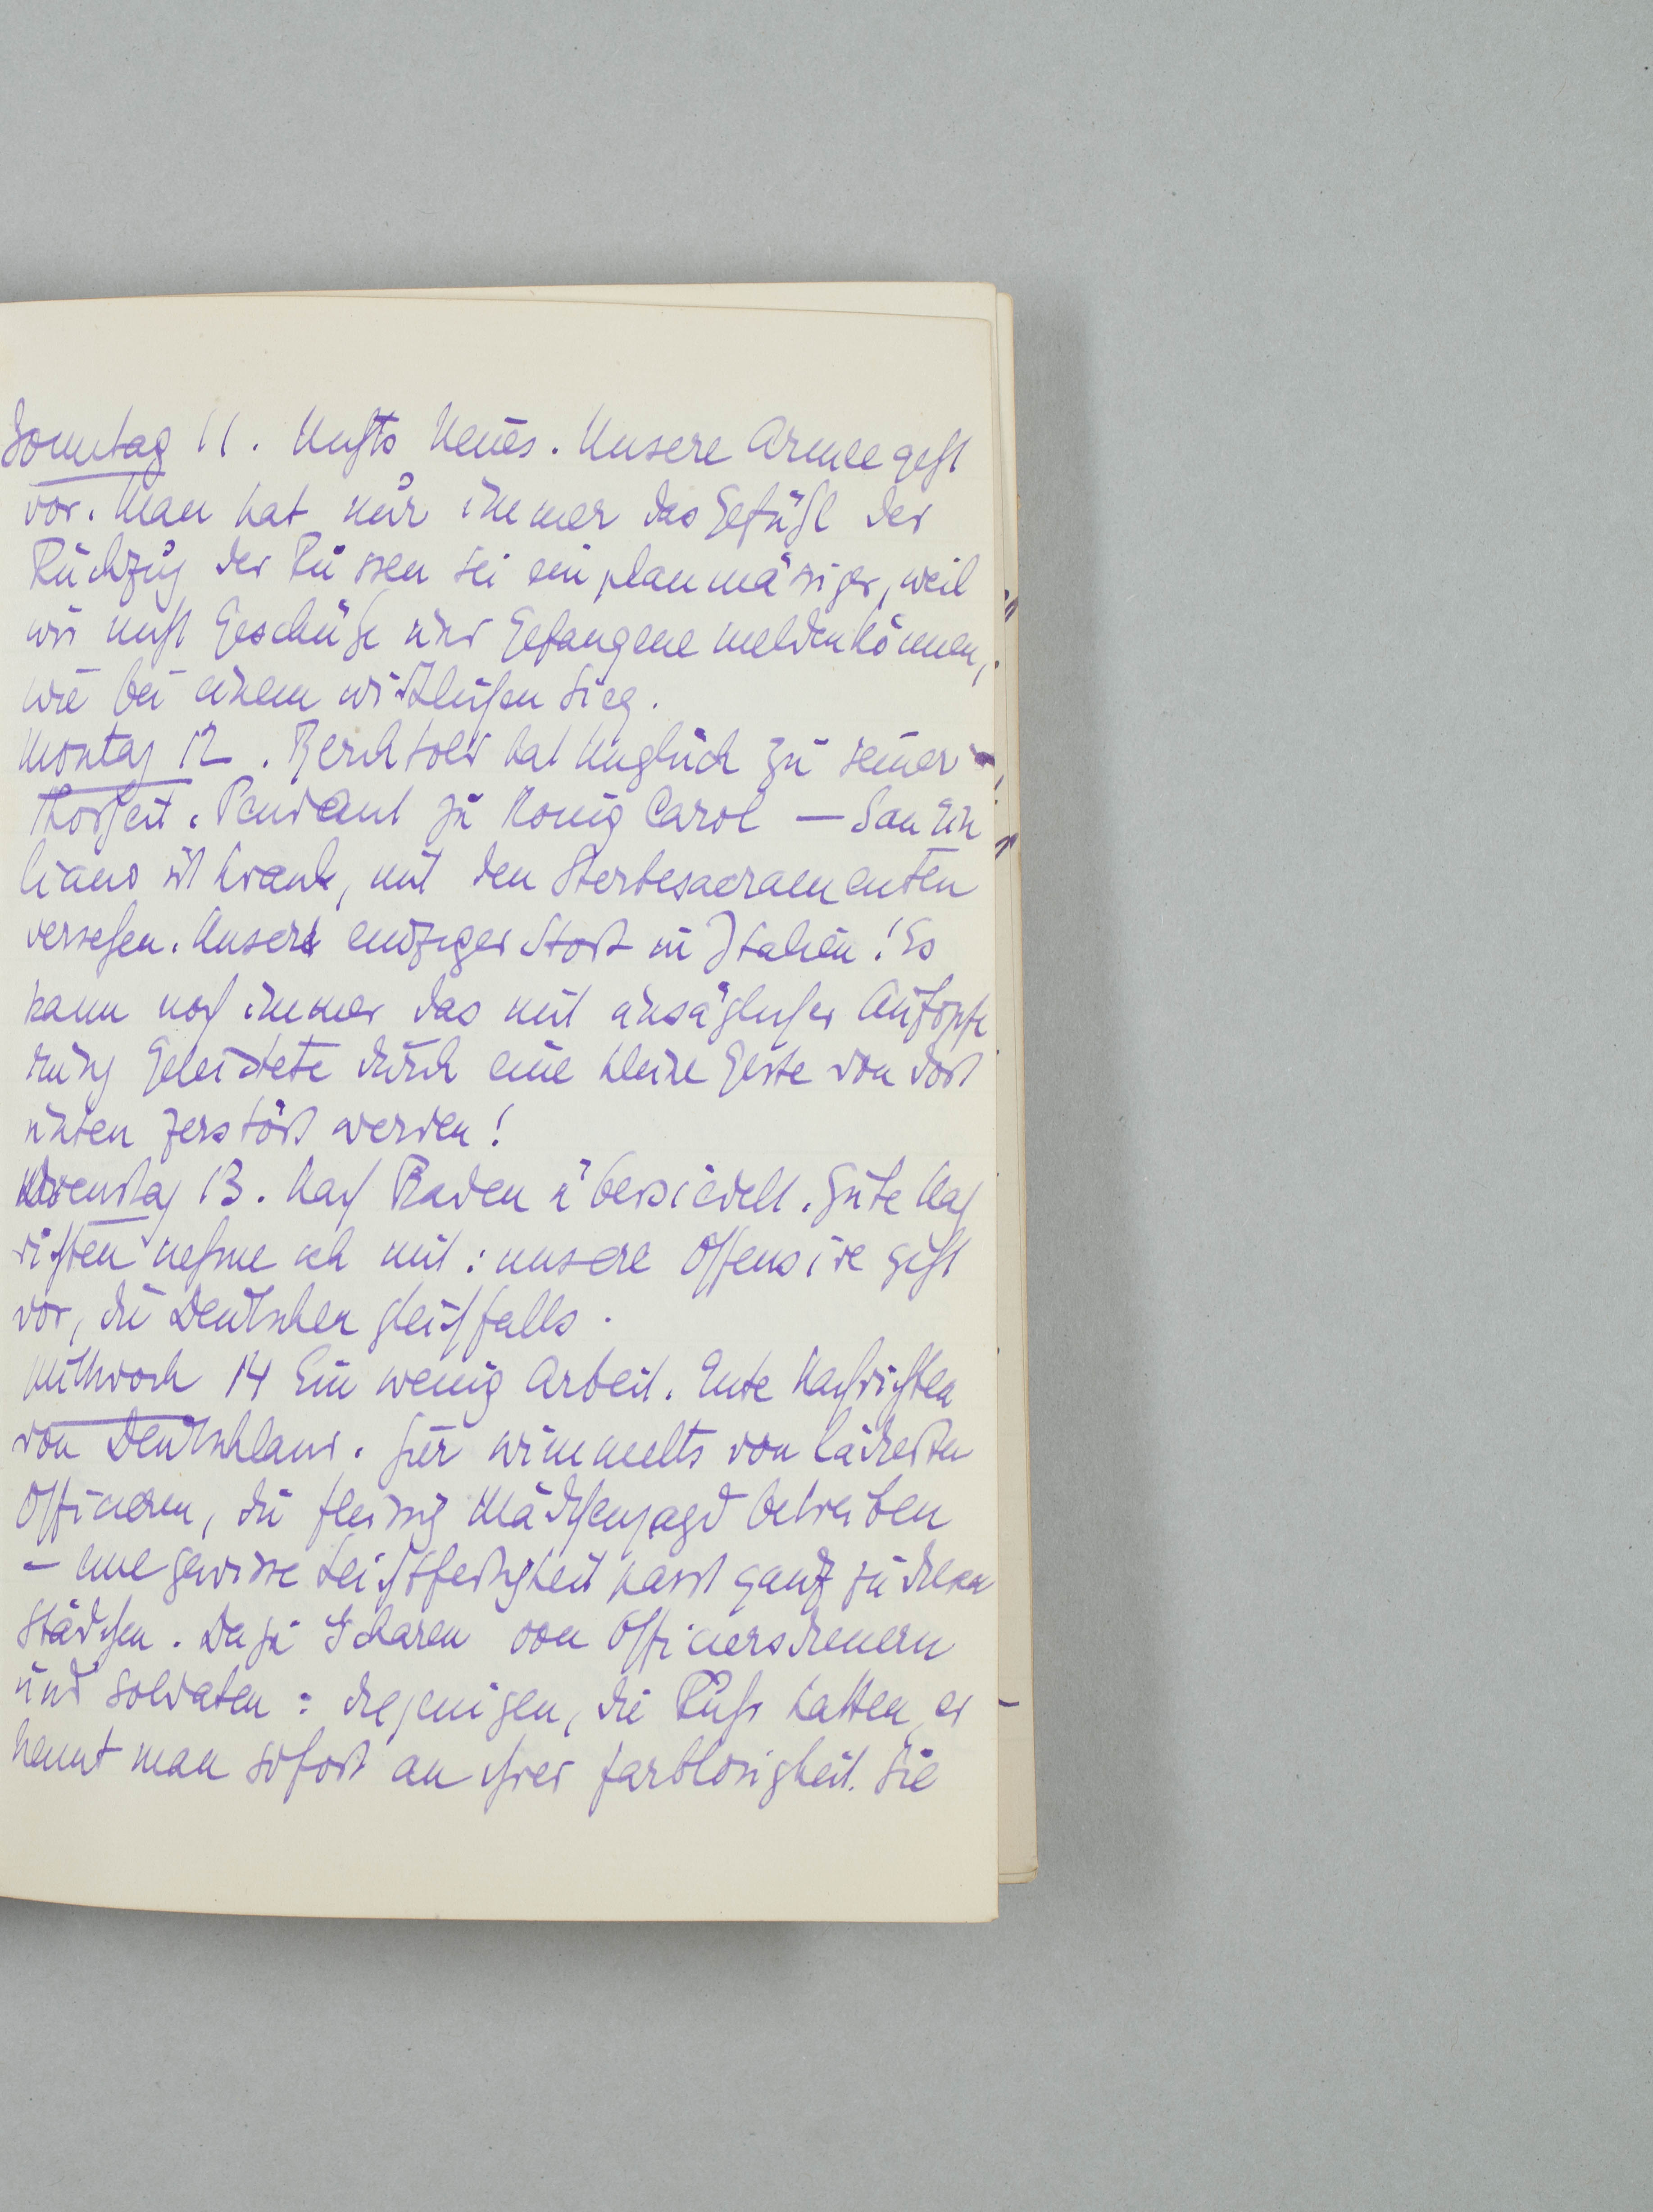 Sonntag 11. Nichts Neues. Unsere Armee geht
vor. Man hat nur immer das Gefühl der
Rückzug der Russen sei ein planmässiger, weil
wir nicht Geschütze und Gefangene melden können,
wie bei einem wirklichen Sieg.
Montag 12. Berchtold hat Unglück zu seiner
Thorheit. Pendant zu König Carol – San Giu
liano ist krank, mit den Sterbesacramenten
versehen. Unser einziger Hort in Italien! Es
kann noch immer das mit unsäglicher Aufopfe
rung Geleistete durch eine kleine Geste von dort
unten zerstört werden!
Dienstag 13. Nach Baden übersiedelt. Gute Nach
richten nehme ich mit: unsere Offensive geht
vor, die Deutschen gleichfalls.
Mittwoch 14 Ein wenig Arbeit. Gute Nachrichten
von Deutschland. Hier wimmelts von lädierten
Officieren, die fleissig Mädchenjagd betreiben
– eine gewisse Leichtfertigkeit passt ganz zu diesem
Städtchen. Dazu Scharen von Officiersdienern
und Soldaten: diejenigen, die Ruhr hatten, er
kennt man sofort an ihrer Farblosigkeit. Sie